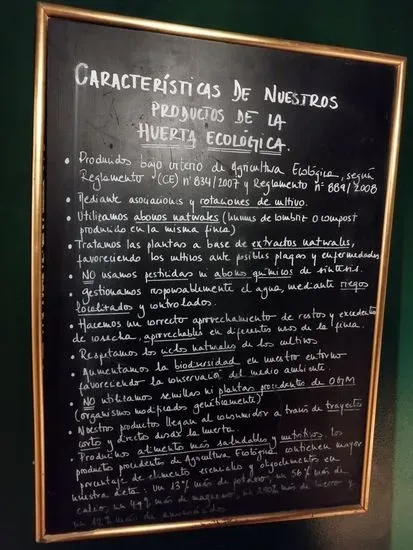 CARACTERÍSTICAS DE NUESTROS
PRODUCTOS DE LA
HUERTA ECOLÓGICA.
• Producidos bajo criterio de Agricultura Ecológica, según
Reglamento (CE) nº 834/2007 y Reglamento nº 889/2008
• Mediante asociaciones y rotaciones de cultivo.
• Utilizamos abonos naturales (humus de lombriz o compost
producido en la misma finca)
• Tratamos las plantas a base de extractos naturales,
favoreciendo los cultivos ante posibles plagas y enfermedades
• NO usamos pesticidas ni abonos químicos de síntesis.
• gestionamos responsablemente el agua, mediante riegos
localizados y controlados.
• Hacemos un correcto aprovechamiento de restos y excedentes
de cosecha, aprovechables en diferentes usos de la finca.
• Respetamos los ciclos naturales de los cultivos
• Aumentamos la biodiversidad en nuestro entorno
favoreciendo la conservación del medio ambiente.
• NO utilizamos semillas ni plantas procedentes de OGM
(organismo modificado genéticamente)
• Nuestros productos llegan al consumidor a través de trayectos
cortos y directos desde la huerta.
• Producimos alimentos más saludables y nutritivos. los
productos procedentes de Agricultura Ecológica contienen mayor
porcentaje de elementos esenciales y oligoelementos en
nuestra dieta: un 13% más de potasio, un 56% más de
calcio, un 49% más de magnesio, un más de hierro y
un 12% más de